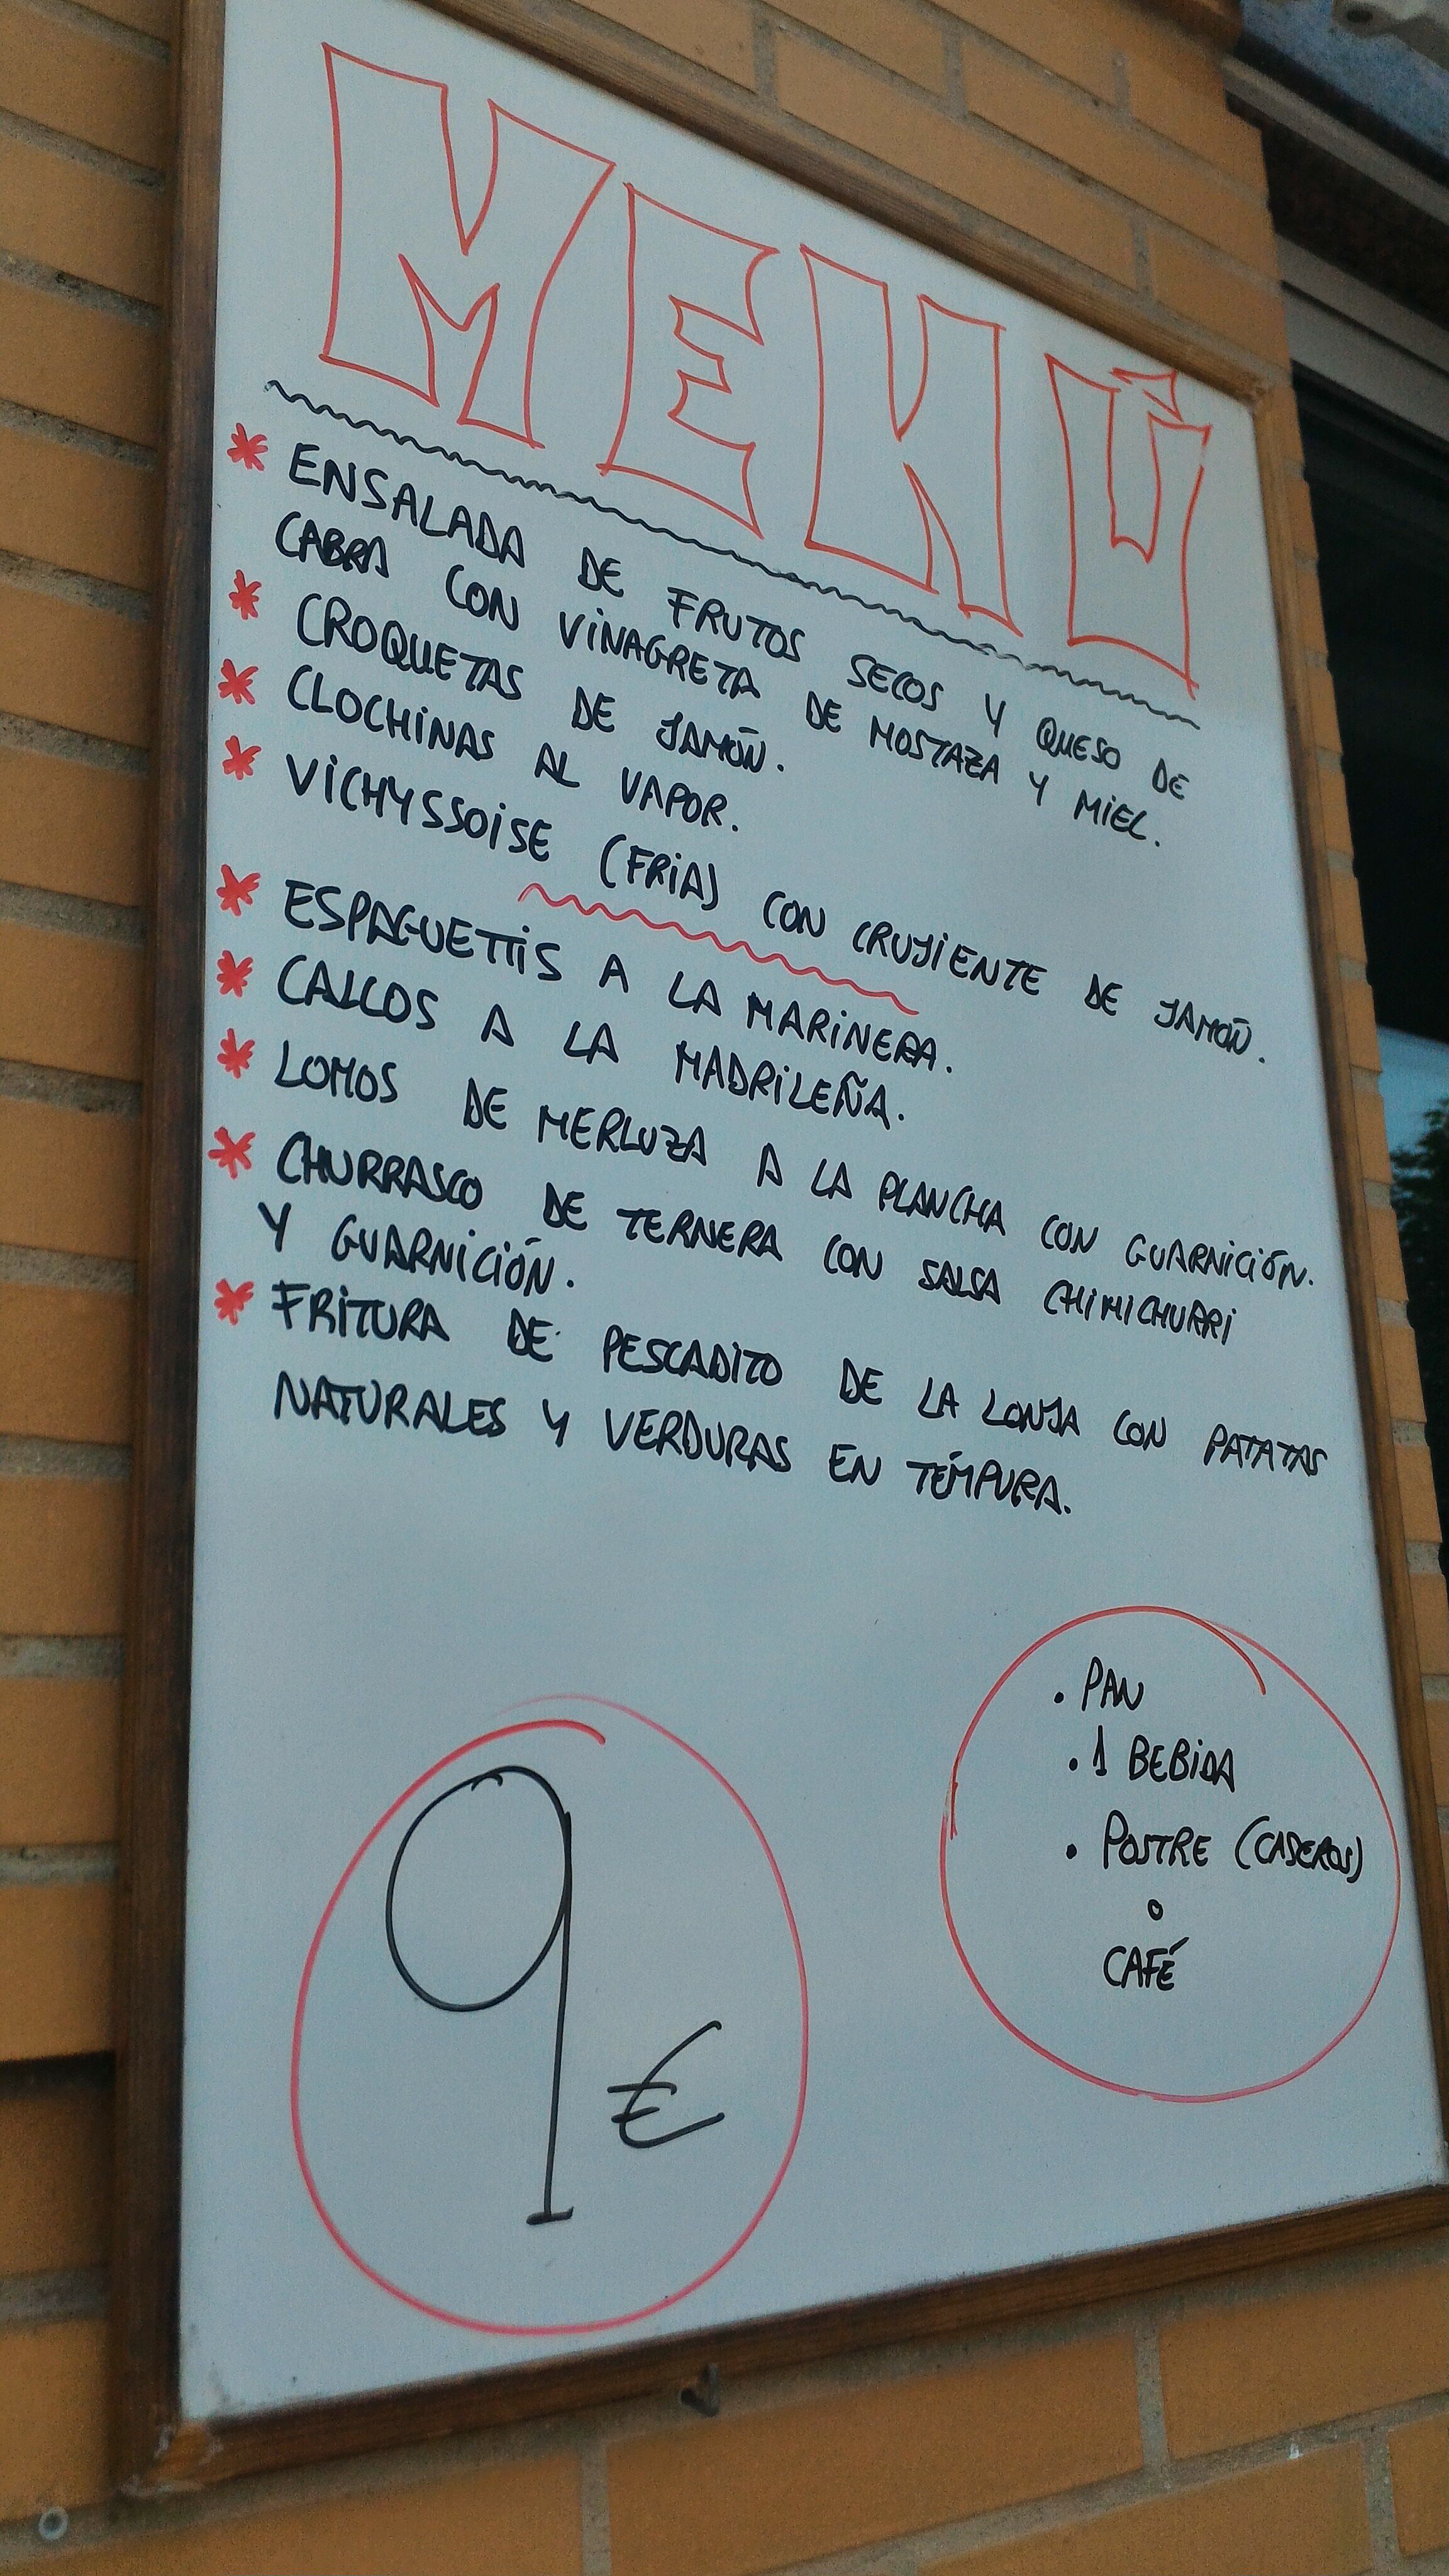 MENÚ
* ENSALADA DE FRUTOS SECOS Y QUESO DE
CABRA CON VINAGRETA DE MOSTAZA Y MIEL.
* CROQUETAS DE JAMÓN.
* CLOCHINAS AL VAPOR.
* VICHYSSOISE (FRIA) CON CRUJIENTE DE JAMÓN.
* ESPAGUETTIS A LA MARINERA.
* CALLOS A LA MADRILEÑA.
* LOMOS DE MERLUZA A LA PLANCHA CON GUARNICIÓN.
* CHURRASCO DE TERNERA CON SALSA CHIMICHURRI
Y GUARNICIÓN.
* FRITURA DE PESCADITO DE LA LONJA CON PATATAS
NATURALES Y VERDURAS EN TÉMPURA.
• PAN
• 1 BEBIDA
• POSTRE (CASEROS)
o
CAFÉ
9 €